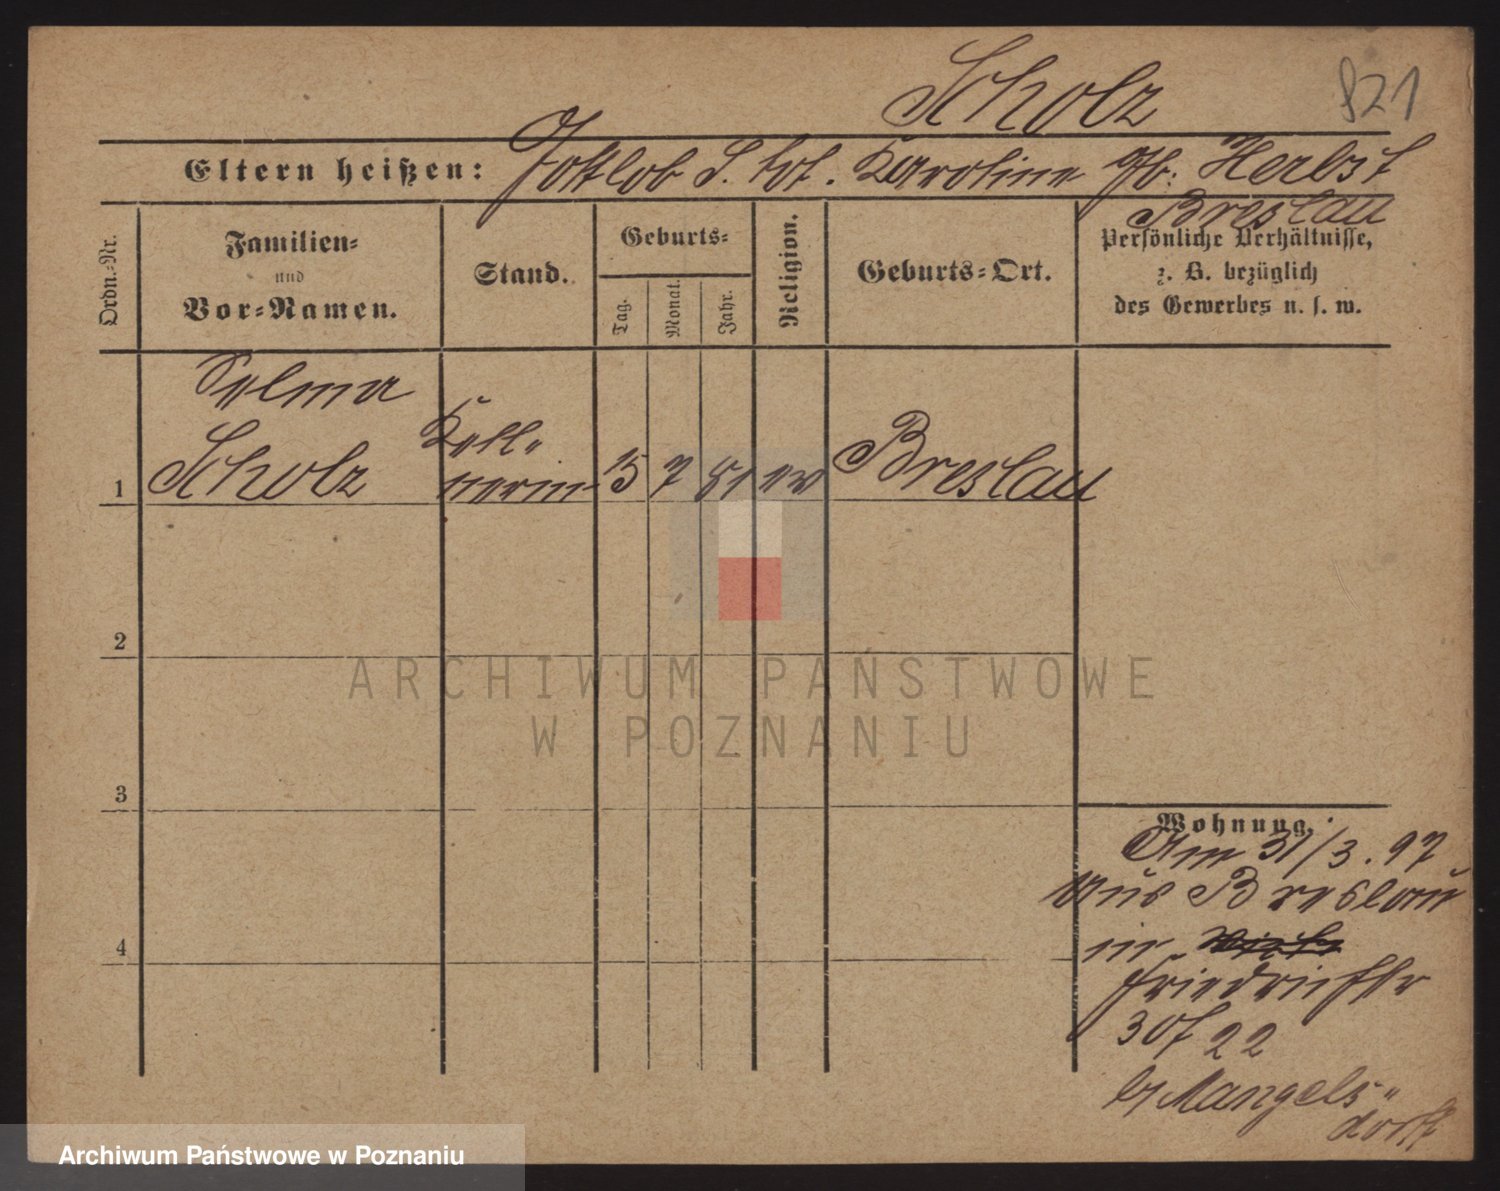 Scholz 821
Eltern heißen: Gottlob S. tot. Karoline gb: Herbst
Breslau
Ordn.-Nr.
Familien-
und
Vor-Namen.
Stand.
Geburts-
Tag.
Monat.
Jahr.
Religion.
Geburts-Ort.
Persönliche Verhältnisse,
z. B. bezüglich
des Gewerbes u. s. w.
Selma
Scholz
Kell-
nerin
1 15 7 81 ev Breslau
2
3
4
Wohnung.
Am 31/3. 97
Aus Breslau
in
Friedrichstr
30 22
b/ Mangels-
dorff
ARCHIWUM PAŃSTWOWE
W POZNANIU
Archiwum Państwowe w Poznaniu